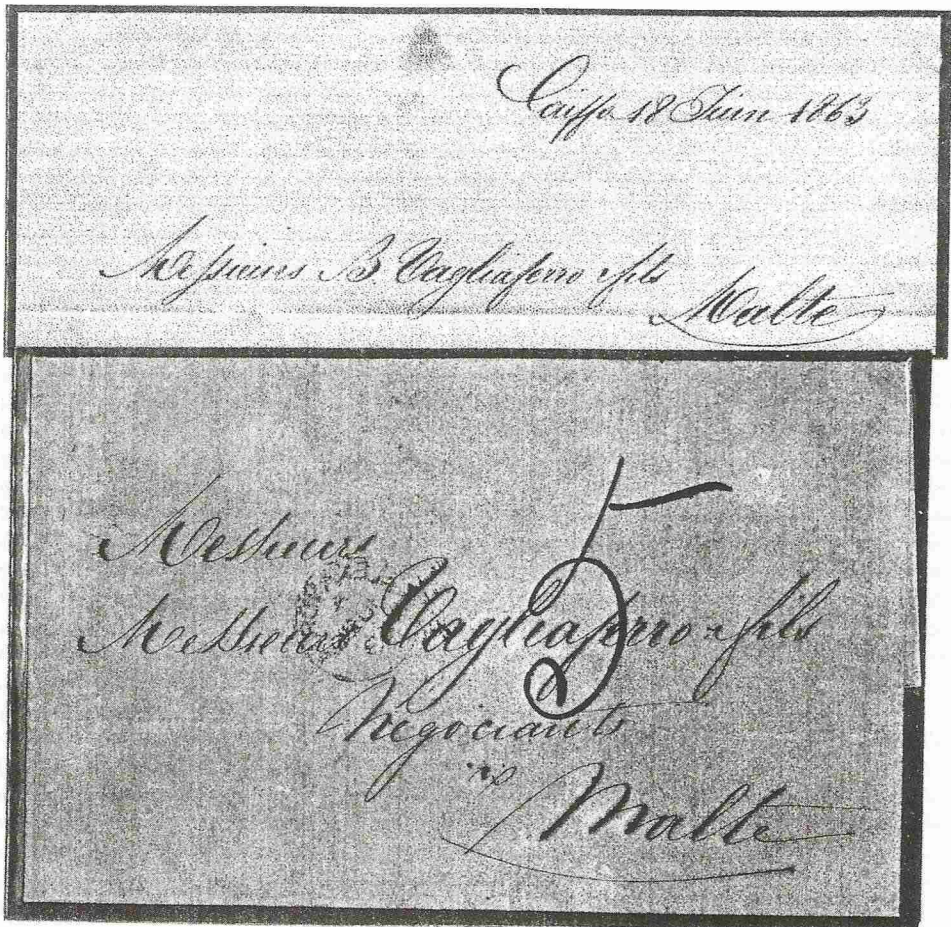 Caiffa 18 Juin 1863
Messieurs B Tagliaferro & fils
Malte
5
Messieurs
Messieurs Tagliaferro & fils
Négociants
à
Malte